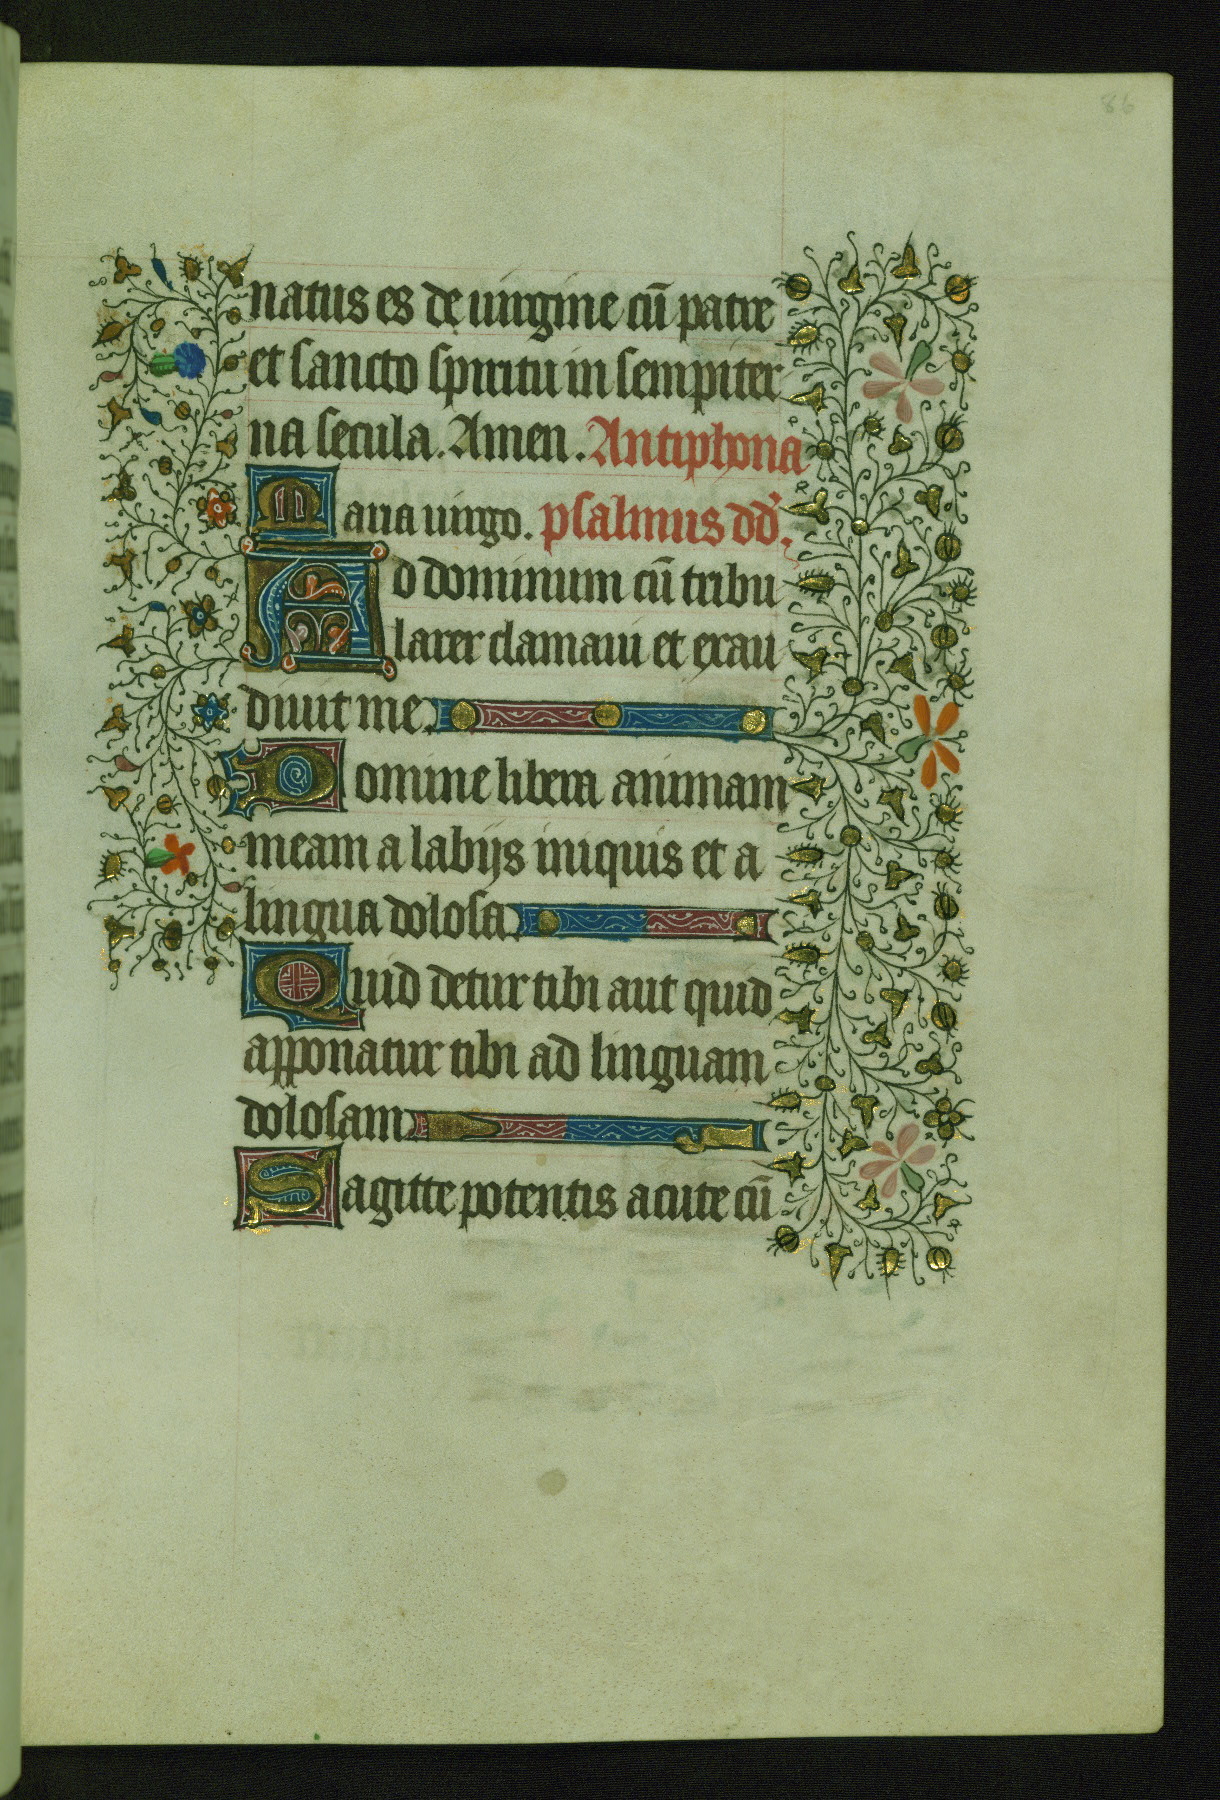 86
natus es de uirgine cū patre
et sancto spiritu in sempiter
na secula. Amen. Antiphona
Maria uirgo. psalmus dd̓.
Ad dominum cū tribu
larer clamaui et exau
diuit me.
Domine libera animam
meam a labijs iniquis et a
lingua dolosa.
Quid detur tibi aut quid
apponatur tibi ad linguam
dolosam.
Sagitte potentis acute cū